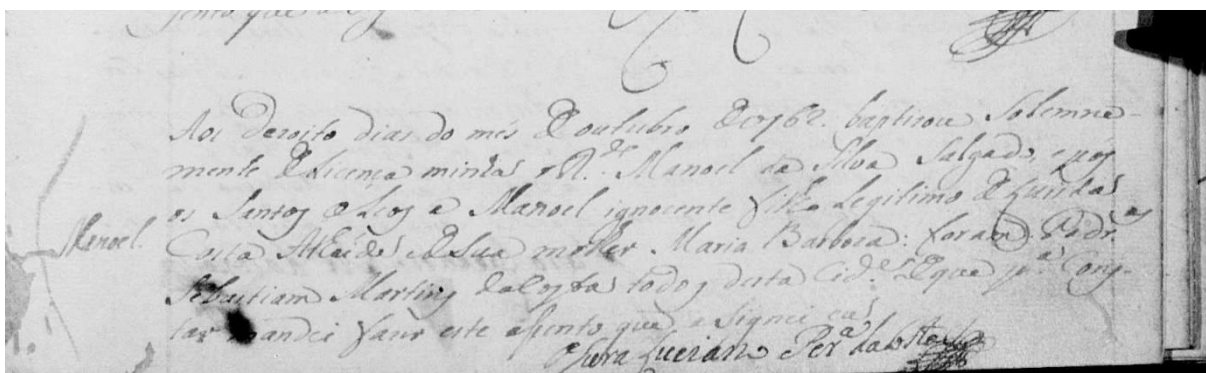 Manoel.
Aos dezoito dias do mês de outubro de 1762. baptizou Solemne-
mente de licença minha o R.do Manoel da Silva Salgado, e pos
os Santos oleos a Manoel ignocente filho Legitimo de
Costa Ataide e de Sua molher Maria Barboza: foram Padr.os
Sebastiam Martins da Costa todos desta Cid.e de que p.a Cons-
tar mandei fazer este asento que asignei
O Cura Per.a da Costa